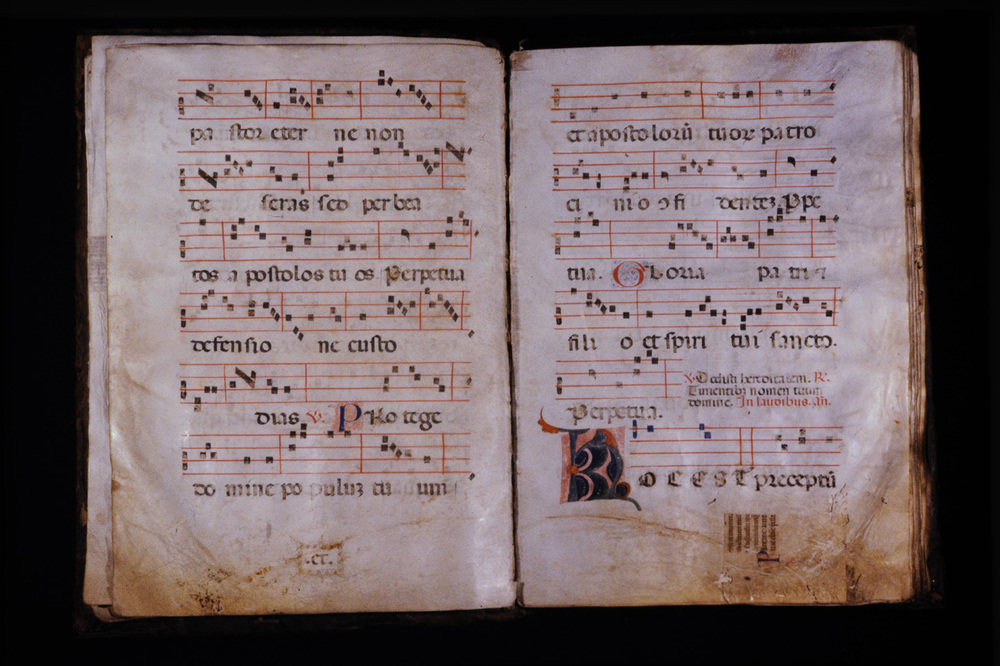 pa stor eter ne non
de seras sed per bea
tos a postolos tu os. Perpetua
defensio ne custo
dias. v. PRo tege
do mine po puluz tu um
.et.
et aposto lorū tuor pa tro
ci ni o ↄfi dentez. Ppe
tua. Gloria pa tri ⁊
fili o et spiri tui sancto.
v. Dedisti hereditatem. R.
Timentibz nomen tuum
domine. In laudibus. an.
Perpetua.
HOC EST preceptū